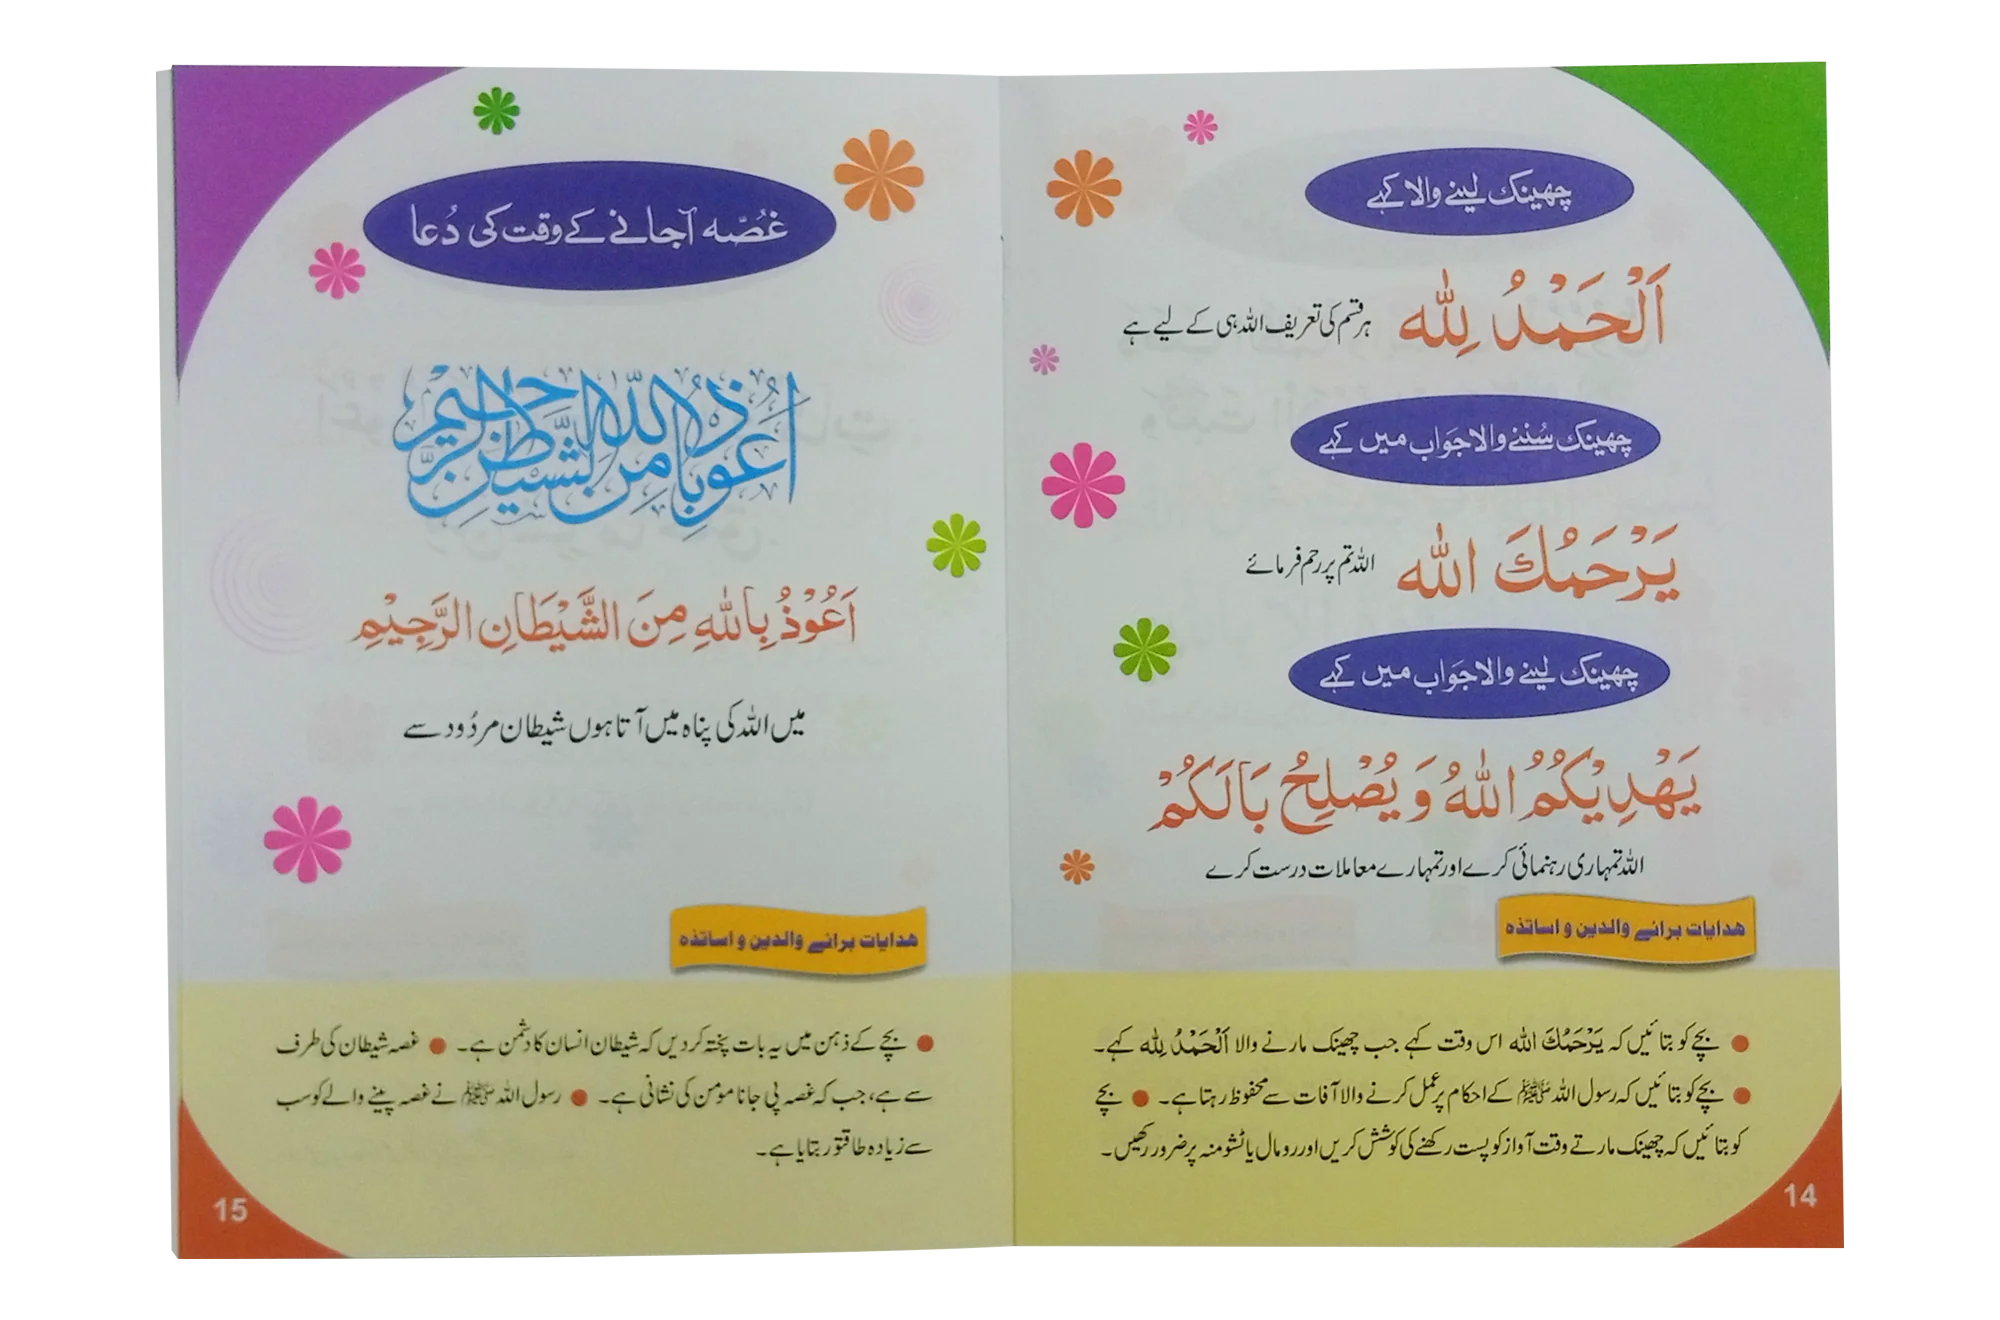 چھینک لینے والا کہے
اَلْحَمْدُ لِلّٰه ہر قسم کی تعریف اللہ ہی کے لیے ہے
چھینک سُننے والا جَواب میں کہے
يَرْحَمُكَ اللّٰه اللہ تم پر رحم فرمائے
چھینک لینے والا جَواب میں کہے
يَهْدِيْكُمُ اللّٰهُ وَ يُصْلِحُ بَالَكُمْ
اللہ تمہاری رہنمائی کرے اور تمہارے معاملات درست کرے
هدایات برائے والدین و اساتذہ
● بچے کو بتائیں کہ يَرْحَمُكَ اللّٰه اس وقت کہے جب چھینک مارنے والا اَلْحَمْدُ لِلّٰه کہے۔
● بچے کو بتائیں کہ رسول اللہ ﷺ کے احکام پر عمل کرنے والا آفات سے محفوظ رہتا ہے۔ ● بچے
کو بتائیں کہ چھینک مارتے وقت آواز کو پست رکھنے کی کوشش کریں اور رومال یا ٹشو منہ پر ضرور رکھیں۔
14
غُصّہ آجانے کے وقت کی دُعا
اَعُوذُ بِاللّٰهِ مِنَ الشَّيْطٰنِ الرَّجِيْمِ
اَعُوْذُ بِاللّٰهِ مِنَ الشَّيْطَانِ الرَّجِيْمِ
میں اللہ کی پناہ میں آتا ہوں شیطان مردُود سے
هدایات برائے والدین و اساتذہ
● بچے کے ذہن میں یہ بات پختہ کردیں کہ شیطان انسان کا دشمن ہے۔ ● غصہ شیطان کی طرف
سے ہے، جب کہ غصہ پی جانا مومن کی نشانی ہے۔ ● رسول اللہ ﷺ نے غصہ پینے والے کو سب
سے زیادہ طاقتور بتایا ہے۔
15